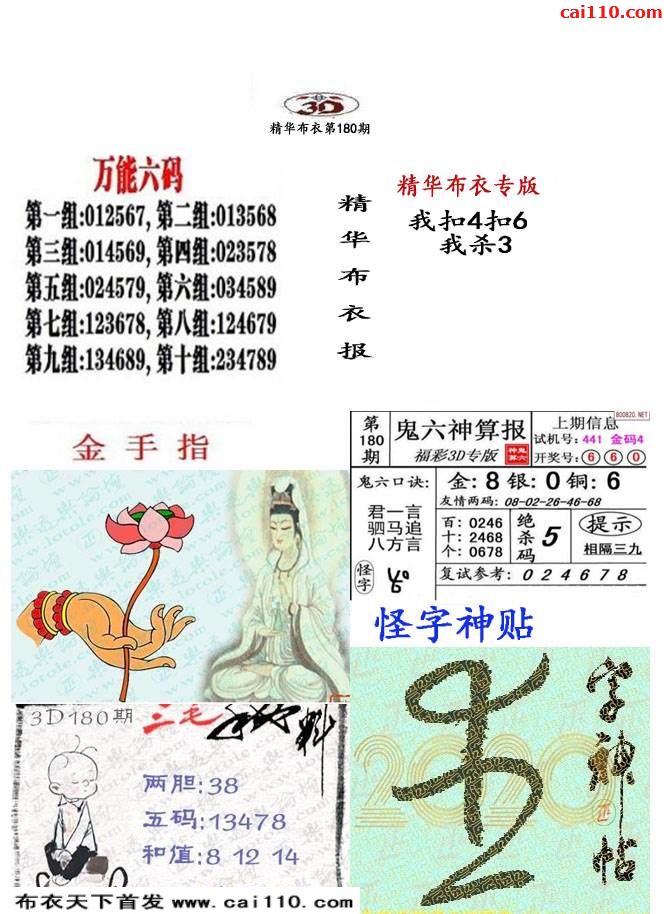 cai110.com
3D
精华布衣第180期
万能六码
第一组:012567, 第二组:013568
第三组:014569, 第四组:023578
第五组:024579, 第六组:034589
第七组:123678, 第八组:124679
第九组:134689, 第十组:234789
精华布衣报
精华布衣专版
我扣4扣6
我杀3
金手指
第180期
鬼六神算报
福彩3D专版
上期信息
800820.NET
试机号: 441 金码4
开奖号: 6 6 0
鬼六口诀:
君一言
驷马追
八方言
金: 8 银: 0 铜: 6
友情两码: 08-02-26-46-68
百: 0246
十: 2468
个: 0678
绝杀码 5
提示
相隔三九
怪字
复试参考: 0 2 4 6 7 8
怪字神贴
字神帖
2020
3D180期
三毛
两胆:38
五码:13478
和值:8 12 14
布衣天下首发 www.cai110.com